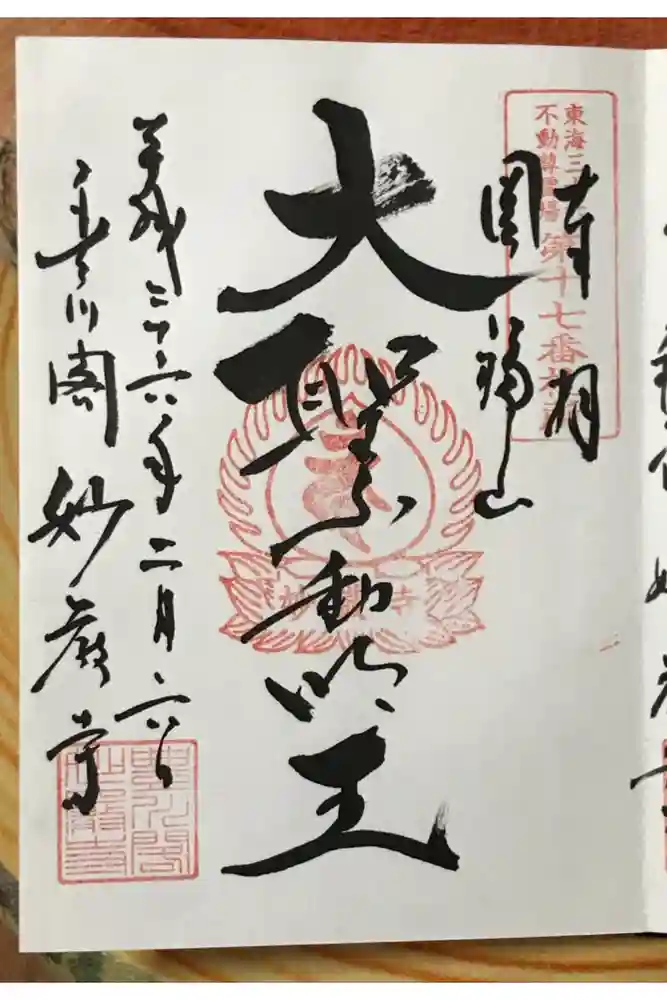 東海三
不動尊霊場
第十七番札所
奉拝
圓福山
大聖不動明王
平成二十六年二月六日
豊川閣 妙嚴寺
妙嚴寺